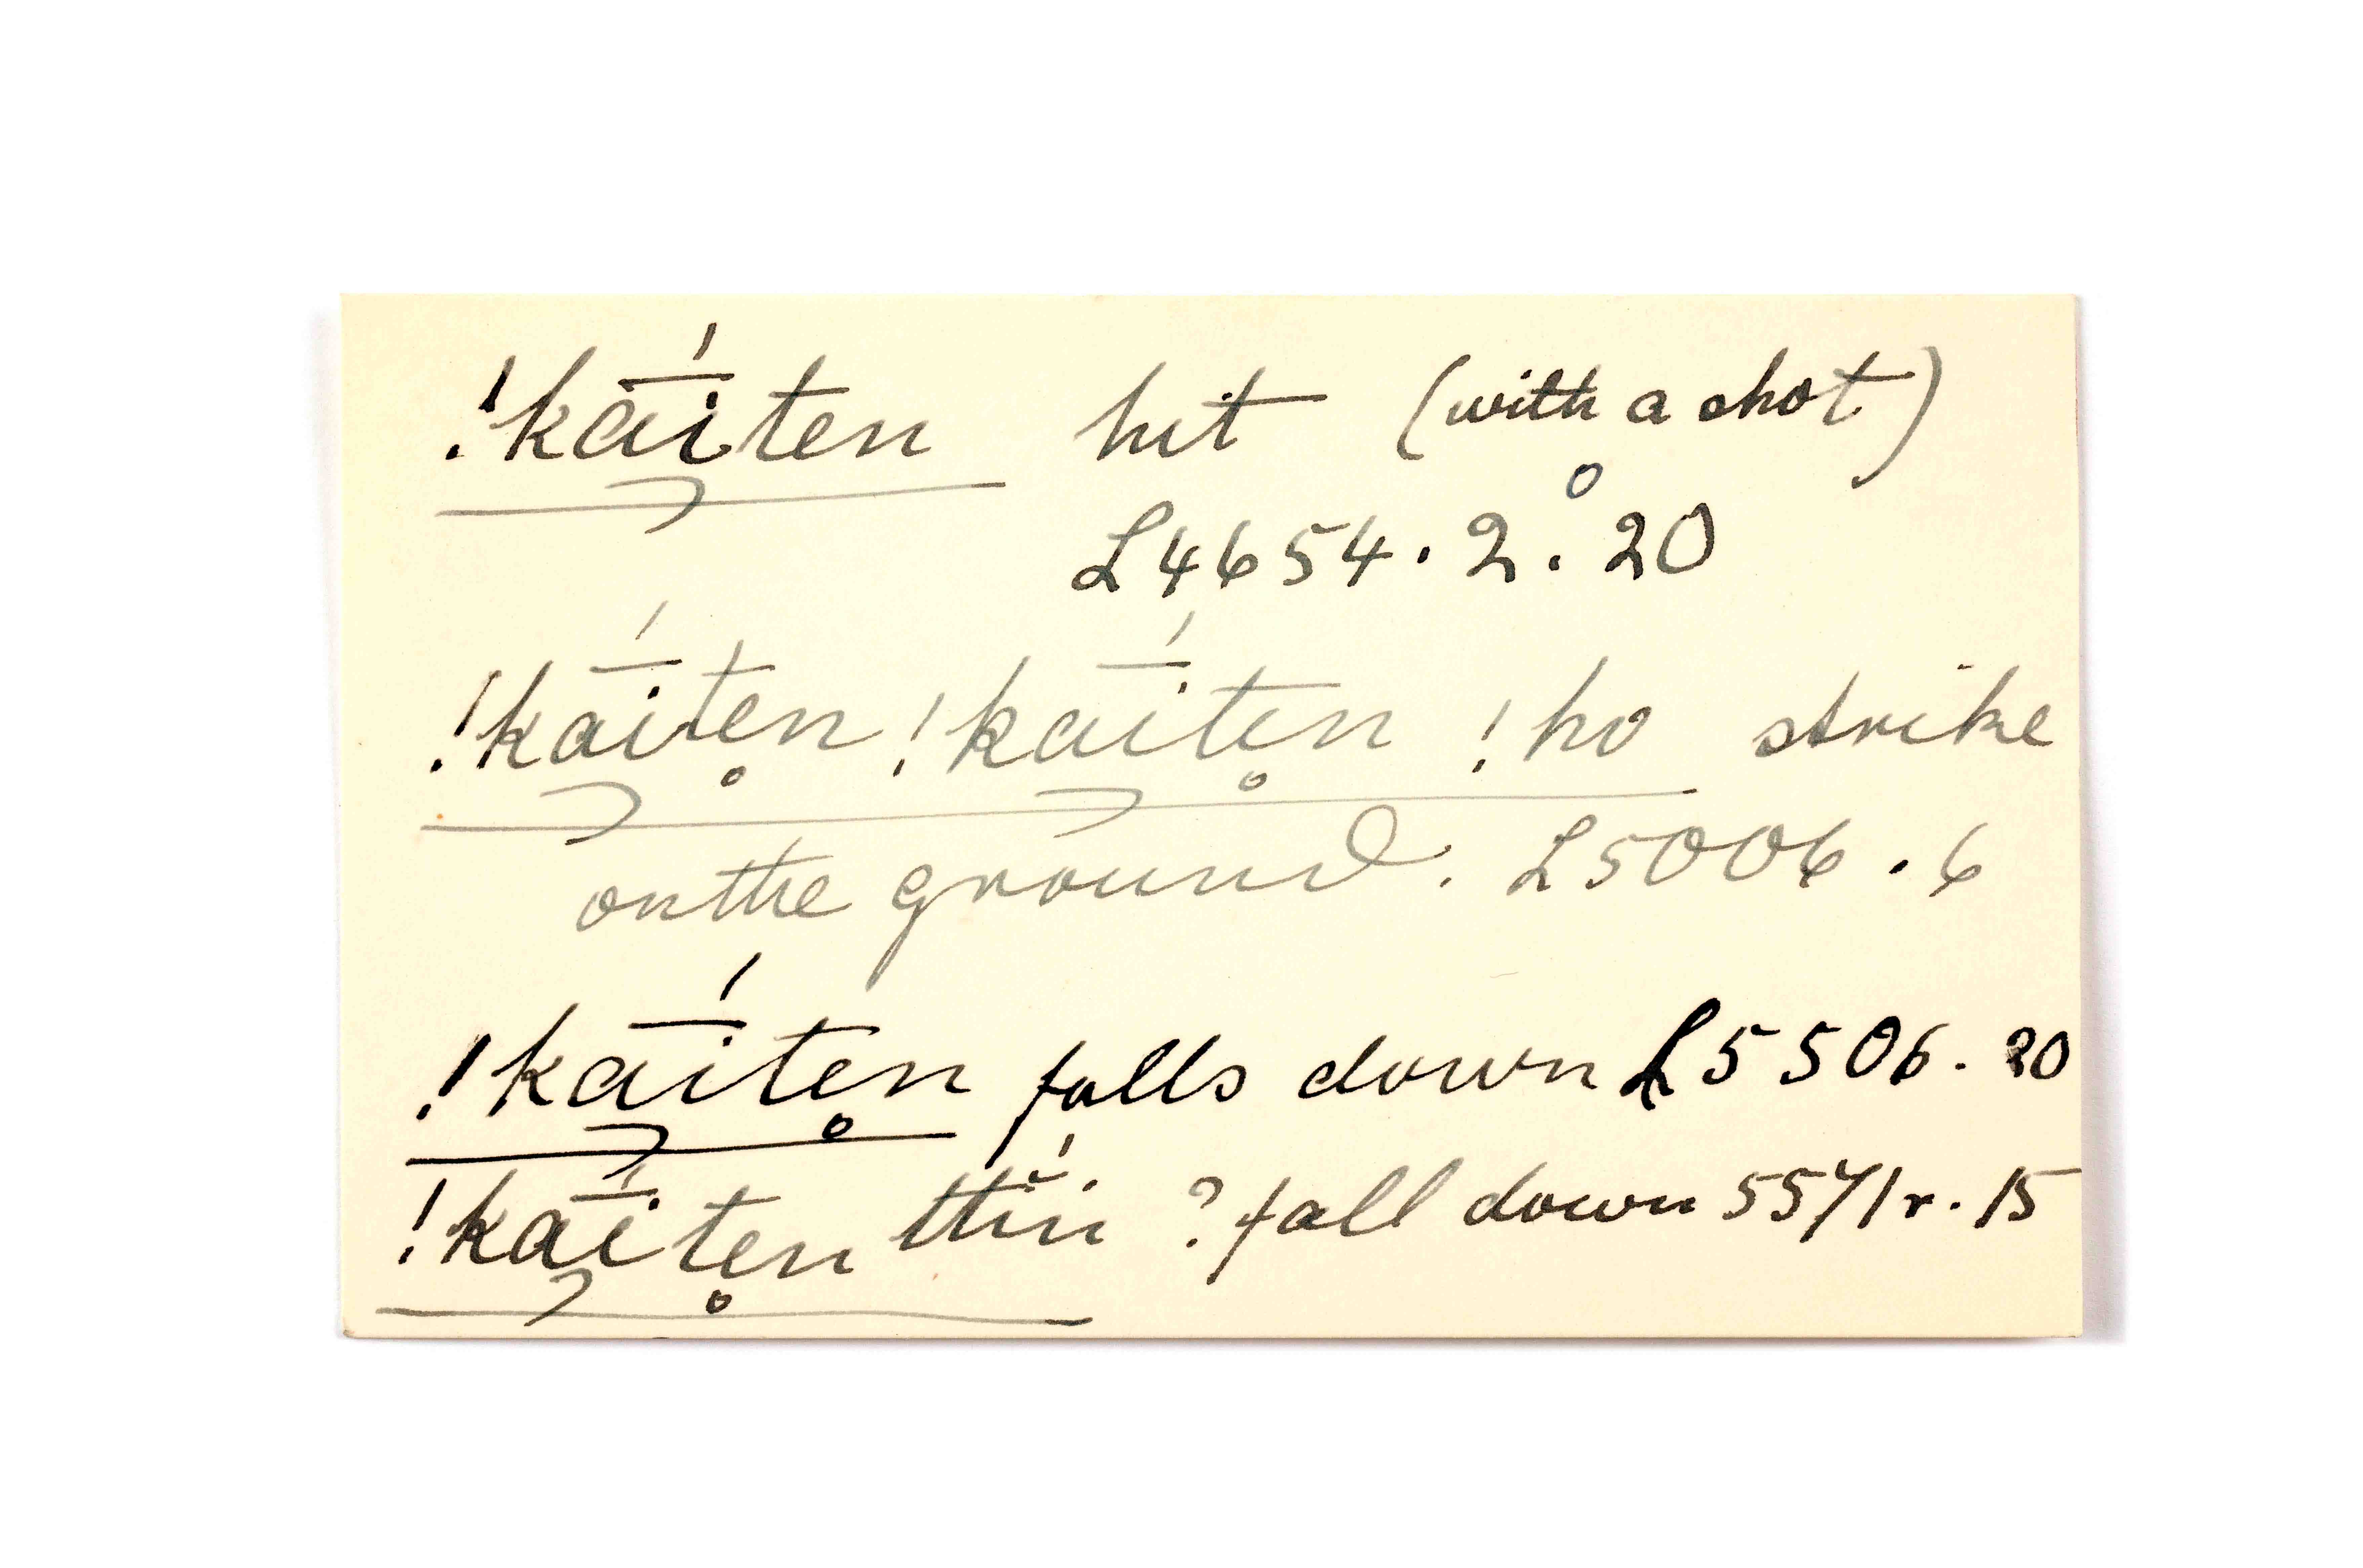 !kā́iten hit (with a shot)
L4654.2.20
!kā́iten̥ !kā́itën̥ !ho strike
on the ground. L5006.6
!kā́iten̥ falls down L5506.20
!kā́iten̥ ttĭ́n ? fall down 5571r.15